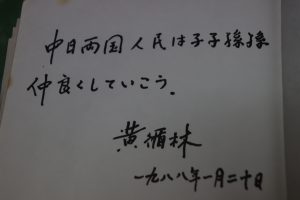 中日両国人民は子子孫孫
仲良くしていこう。
黄循林
一九八八年一月二十日